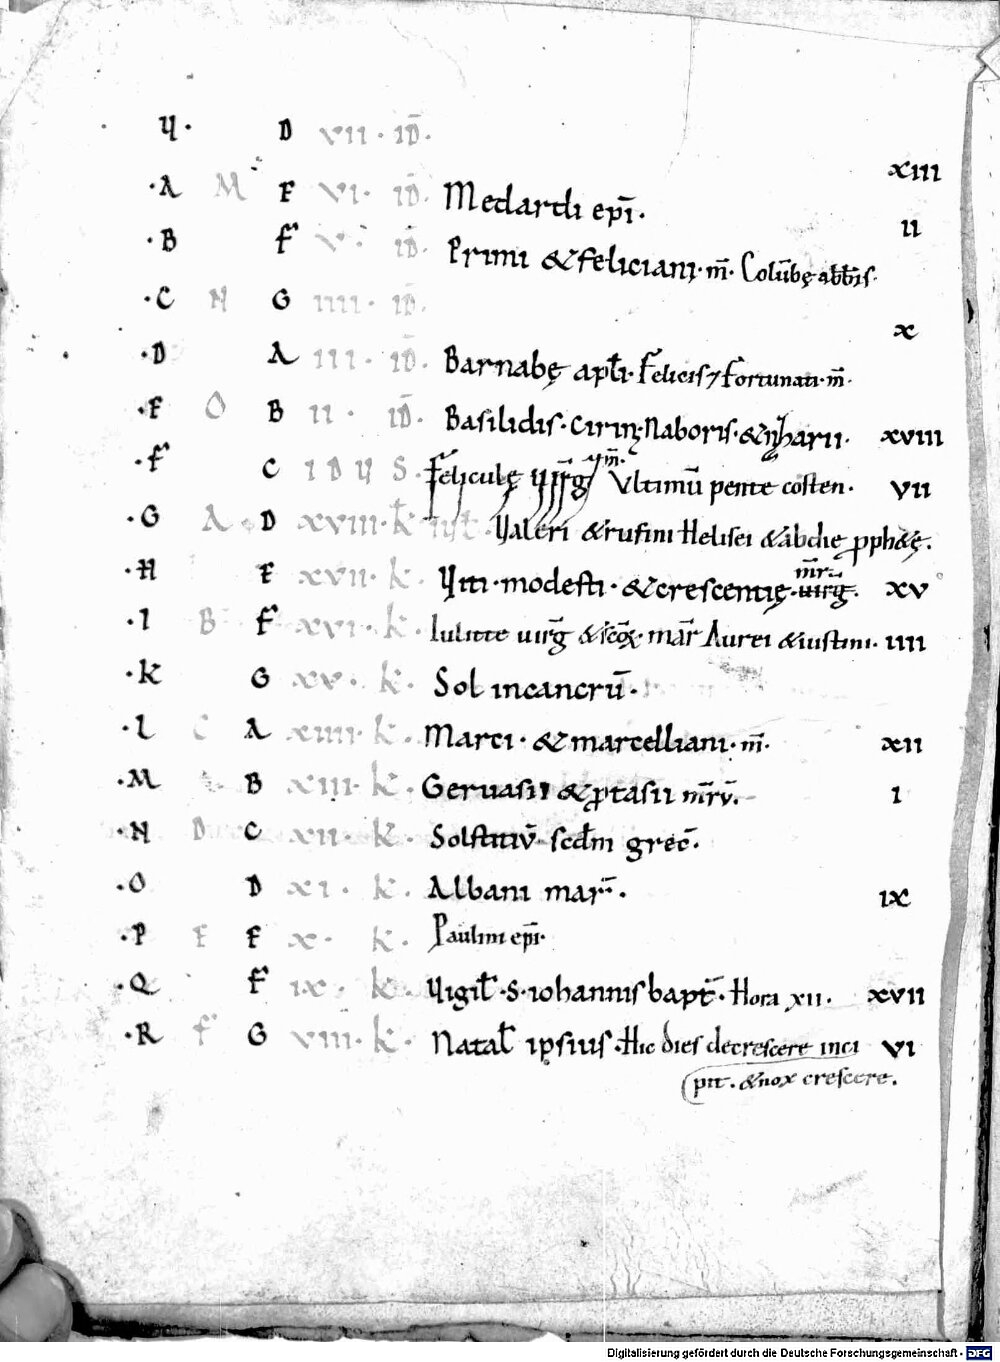 V· D VII · ID̄·
xiii
·A M F VI· ID̄· Medardi ep̄i·
II
·B F V ID̄· Primi & feliciani· m̄· Colūbę abb̄is·
·C N G IIII · ID̄·
x
·D A III · ID̄· Barnabę apl̄i· Felicis 7 fortunati· m̄·
·E O B II · ID̄· Basilidis· Cirini· Naboris· & Nazarii· xviii
·F C IDUS· Feliculę virḡ m̄· Ultimū pentecosten· vii
·G A D XVIII· k̄ iul̄· Valeri & rufini Helisei & abdię prophetę·
·H E XVII· k· Viti· modesti· & crescentię· mr̄ virḡ· xv
·I B F XVI· k· Iulitte uirḡ & mar̄ Aurei & iustini· iiii
·K G XV· k· Sol in cancrū·
·L C A XIIII· k· Marci· & marcelliani· m̄· xii
·M B XIII· k· Geruasii & ꝓtasii m̄rū· i
·N D C XII· k· Solstitiū scd̄m grec̄·
·O D XI· k· Albani mar̄· ix
·P E E X· k· Paulini ep̄i·
·Q F IX· k· Vigil̄· S· iohannis bapt̄· Hora xii· xvii
·R F G VIII· k· Natal̄ ipsius· Hic dies decrescere inci vi
pit· & nox crescere·
Digitalisierung gefördert durch die Deutsche Forschungsgemeinschaft · DFG